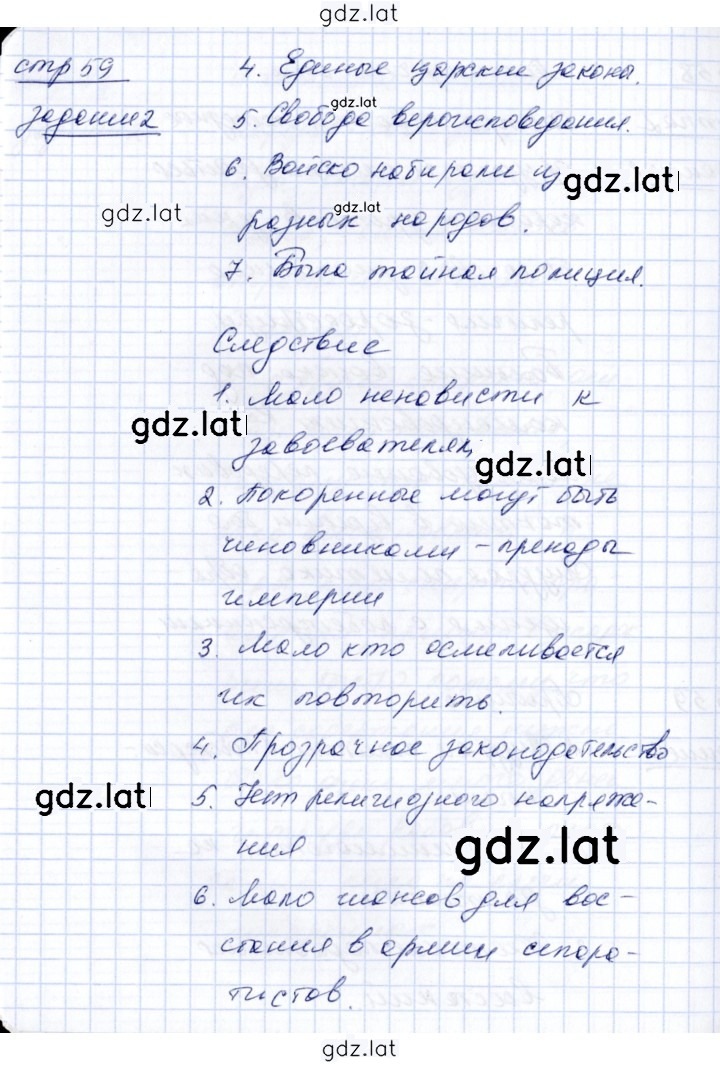 gdz.lat
стр 59
4. Единые царские законы.
gdz.lat
задание 2
5. Свобода вероисповедания.
6. Войско набирали из
gdz.lat
gdz.lat
gdz.lat
разных народов.
7. Была тайная полиция.
Следствие
1. Мало ненависти к
gdz.lat
завоевателям
gdz.lat
2. Покоренные могут быть
чиновниками - преданы
империи
3. Мало кто осмеливается
их повторить.
4. Прозрачное законодательство
gdz.lat
5. Нет религиозного напряже-
ния
gdz.lat
6. Мало шансов для вос-
стания в армии сепара-
тистов.
gdz.lat